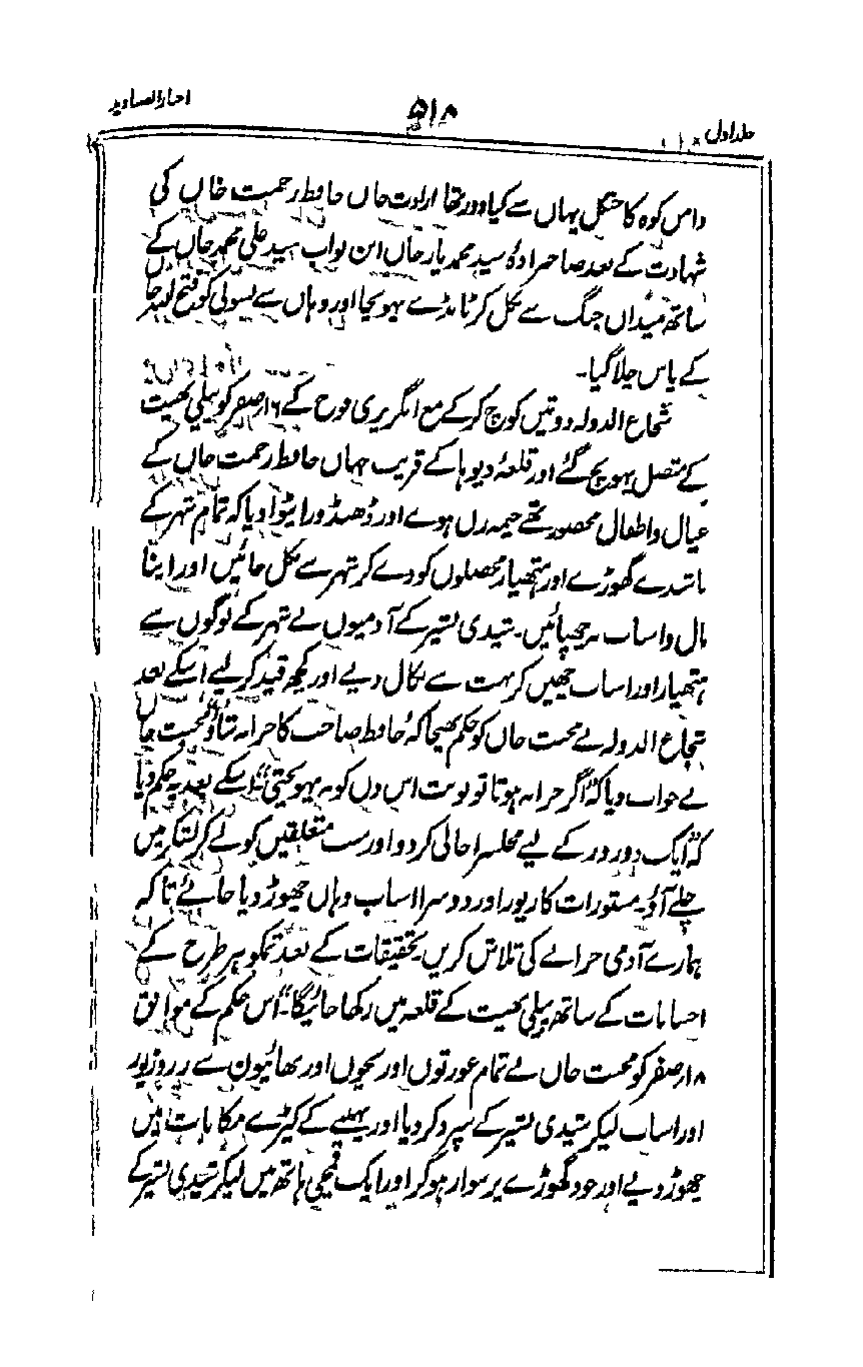 اخبار الصنادید
۵۱۸
جلد اول
دامن کوہ کا جنگل یہاں سے کیا دور تھا ارادت خاں حافظ رحمت خاں کی
شہادت کے بعد صاحبزادہ سید محمد یار خاں ابن نواب سید علی محمد خاں کے
ساتھ میدان جنگ سے نکل کر ٹانڈے پہونچا اور وہاں سے بسولی کو فتح اللہ خاں
کے پاس چلا گیا۔
شجاع الدولہ دو تین کوچ کر کے مع انگریزی فوج کے ۱۶ صفر کو پیلی بھیت
کے متصل پہونچ گئے اور قلعہ دیوہا کے قریب جہاں حافظ رحمت خاں کے
عیال واطفال محصور تھے خیمہ زن ہوے اور ڈھنڈورا پٹوا دیا کہ تمام شہر کے
باشندے گھوڑے اور ہتھیار محصلوں کو دے کر شہر سے نکل جائیں اور اپنا
مال واسباب نہ چھپائیں۔ سیدی بشیر کے آدمیوں نے شہر کے لوگوں سے
ہتھیار اور اسباب چھین کر بہت سے نکال دیے اور کچھ قید کر لیے اسکے بعد
شجاع الدولہ نے محبت خاں کو حکم بھیجا کہ حافظ صاحب کا خزانہ بتاؤ محبت خاں
نے جواب دیا کہ "اگر خزانہ ہوتا تو نوبت اس دن کو نہ پہونچتی" اسکے بعد یہ حکم دیا
کہ "ایک دو روز کے لیے محلسرا خالی کر دو اور سب متعلقین کو لے کر لشکر میں
چلے آؤ۔ مستورات کا زیور اور دوسرا اسباب وہاں چھوڑ دیا جائے تاکہ
ہمارے آدمی خزانے کی تلاش کریں۔ تحقیقات کے بعد تمکو ہر طرح کے
احسانات کے ساتھ پیلی بھیت کے قلعہ میں رکھا جائیگا"۔ اس حکم کے موافق
۱۸ صفر کو محبت خاں نے تمام عورتوں اور بچوں اور بھائیون سے زر وزیور
اور اسباب لیکر سیدی بشیر کے سپرد کر دیا اور پہننے کے کپڑے مکانات میں
چھوڑ دیے اور خود گھوڑے پر سوار ہو کر اور ایک قمچی ہاتھ میں لیکر سیدی بشیر کے